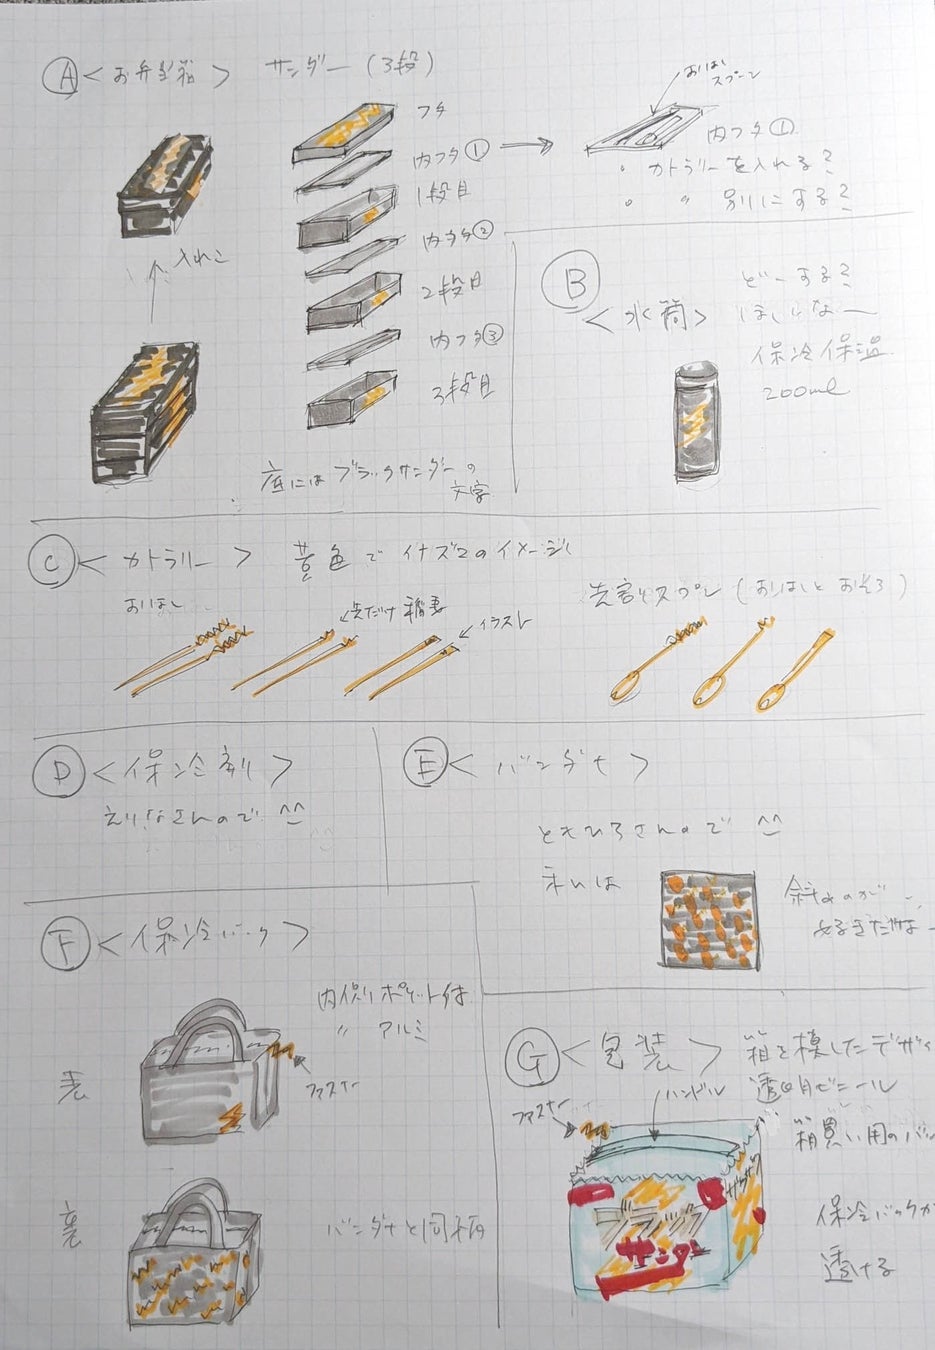 Ⓐ＜お弁当箱＞ サンダー（3段）
フタ
内フタ①
1段目
内フタ②
2段目
内フタ③
3段目
入れこ
底にはブラックサンダーの
文字
おはし
スプーン
内フタ①
。カトラリーを入れる?
。 〃 別にする?
Ⓑ
＜水筒＞
どーする?
ほしいなー
保冷保温
200ml
Ⓒ＜カトラリー＞ 黄色でイナズマのイメージ
おはし
先だけ稲妻
イラスト
先割れスプーン（おはしとおそろ）
Ⓓ＜保冷剤＞
えりなさんので ^^
Ⓔ＜バンダナ＞
ともひろさんので ^^
私は
斜めのが
好きだなー
Ⓕ＜保冷バック＞
内側ポケット付
〃 アルミ
ファスナー
表
裏
バンダナと同柄
Ⓖ＜包装＞
箱を模したデザイ
透明ビニール
箱買い用のバッ
ファスナー
ハンドル
保冷バックが
透ける
ブラック
サンダー
ザクザク